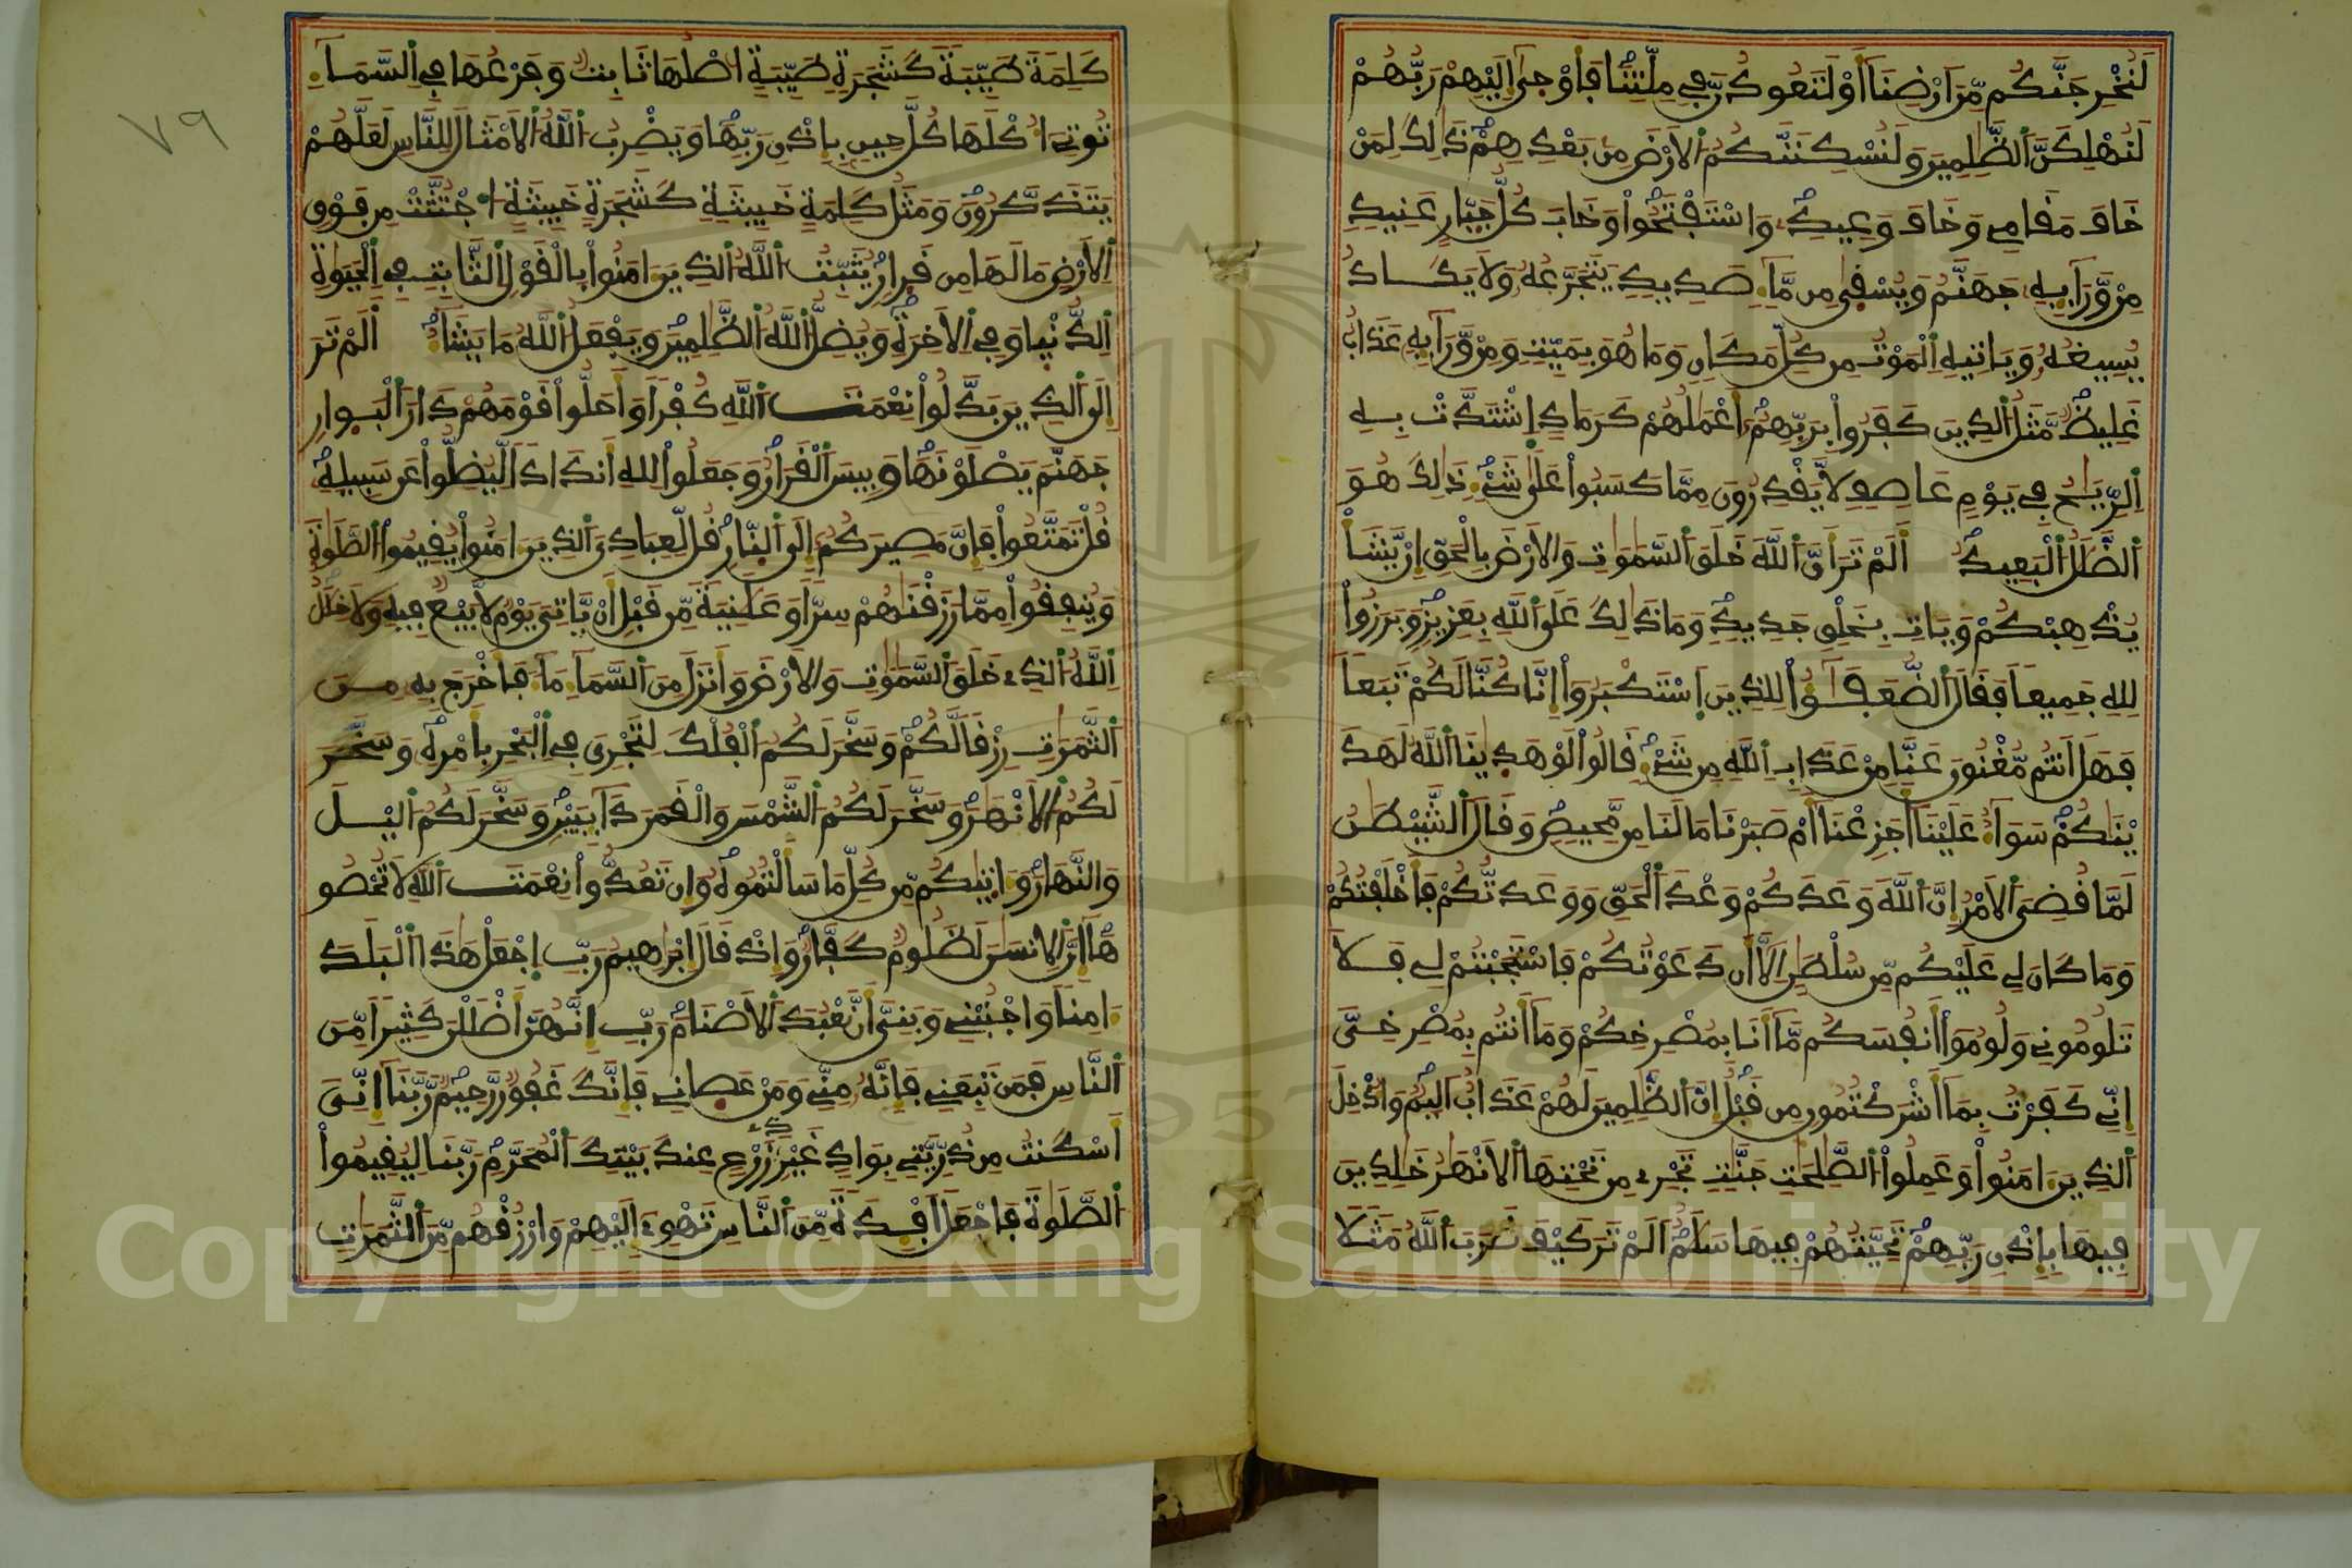 لَنُخْرِجَنَّكُم مِّنَ اَرْضِنَا أَوْ لَتَعُودُنَّ فِے مِلَّتِنَا فَأَوْحَىٰ إِلَيْهِمْ رَبُّهُمْ
لَنُهْلِكَنَّ اَلظَّٰلِمِينَ وَلَنُسْكِنَنَّكُمُ اُلَارْضَ مِنۢ بَعْدِهِمْ ذَٰلِكَ لِمَنْ
خَافَ مَقَامِے وَخَافَ وَعِيدِ وَاسْتَفْتَحُواْ وَخَابَ كُلُّ جَبّ۪ارٍ عَنِيدٖ
مِّنْ وَّرَآئِهِۦ جَهَنَّمُ وَيُسْقَىٰ مِن مَّآءٖ صَدِيدٖ يَتَجَرَّعُهُۥ وَلَا يَكَادُ
يُسِيغُهُۥ وَيَاتِيهِ اِلْمَوْتُ مِن كُلِّ مَكَانٖ وَمَا هُوَ بِمَيِّتٖ وَمِنْ وَّرَآئِهِۦ عَذَابٌ
غَلِيظٞ مَّثَلُ اُلذِينَ كَفَرُواْ بِرَبِّهِمُۥٓ أَعْمَٰلُهُمْ كَرَمَادٍ اِشْتَدَّتْ بِهِ
اِلرِّيَٰحُ فِے يَوْمٍ عَاصِفٖ لَّا يَقْدِرُونَ مِمَّا كَسَبُواْ عَلَىٰ شَےْءٖ ذَٰلِكَ هُوَ
اَلضَّلَٰلُ اُلْبَعِيدُ أَلَمْ تَرَ أَنَّ اَللَّهَ خَلَقَ اَلسَّمَٰوَٰتِ وَالَارْضَ بِالْحَقِّ إِنْ يَّشَأْ
يُذْهِبْكُمْ وَيَاتِ بِخَلْقٖ جَدِيدٖ وَمَا ذَٰلِكَ عَلَى اَللَّهِ بِعَزِيزٖ وَبَرَزُواْ
لِلهِ جَمِيعاٗ فَقَالَ اَلضُّعَفَٰٓؤُاْ لِلذِينَ اَسْتَكْبَرُوٓاْ إِنَّا كُنَّا لَكُمْ تَبَعاٗ
فَهَلَ اَنتُم مُّغْنُونَ عَنَّا مِنْ عَذَابِ اِللَّهِ مِن شَےْءٖ قَالُواْ لَوْ هَدَىٰنَا اَللَّهُ لَهَدَ
يْنَٰكُمْ سَوَآءٌ عَلَيْنَآ أَجَزِعْنَآ أَمْ صَبَرْنَا مَا لَنَا مِن مَّحِيصٖ وَقَالَ اَلشَّيْطَٰنُ
لَمَّا قُضِىَ اَلَامْرُ إِنَّ اَللَّهَ وَعَدَكُمْ وَعْدَ اَلْحَقِّ وَوَعَدتُّكُمْ فَأَخْلَفْتُكُمْ
وَمَا كَانَ لِے عَلَيْكُم مِّن سُلْطَٰنٍ اِلَّآ أَن دَعَوْتُكُمْ فَاسْتَجَبْتُمْ لِے فَلَا
تَلُومُونِے وَلُومُوٓاْ أَنفُسَكُم مَّآ أَنَا بِمُصْرِخِكُمْ وَمَآ أَنتُم بِمُصْرِخِىَّ
إِنِّے كَفَرْتُ بِمَآ أَشْرَكْتُمُونِ مِن قَبْلُ إِنَّ اَلظَّٰلِمِينَ لَهُمْ عَذَابٌ اَلِيمٞ وَأُدْخِلَ
اَلذِينَ ءَامَنُواْ وَعَمِلُواْ اُلصَّٰلِحَٰتِ جَنَّٰتٖ تَجْرِے مِن تَحْتِهَا اَلَانْهَٰرُ خَٰلِدِينَ
فِيهَا بِإِذْنِ رَبِّهِمْ تَحِيَّتُهُمْ فِيهَا سَلَٰمٌ اَلَمْ تَرَ كَيْفَ ضَرَبَ اَللَّهُ مَثَلاٗ
٧٩
كَلِمَةٗ طَيِّبَةٗ كَشَجَرَةٖ طَيِّبَةٍ اَصْلُهَا ثَابِتٞ وَفَرْعُهَا فِے اِلسَّمَآءِ
تُوتِےٓ أُكْلَهَا كُلَّ حِينِۢ بِإِذْنِ رَبِّهَا وَيَضْرِبُ اُللَّهُ اُلَامْثَالَ لِلنَّاسِ لَعَلَّهُمْ
يَتَذَكَّرُونَ وَمَثَلُ كَلِمَةٍ خَبِيثَةٖ كَشَجَرَةٍ خَبِيثَةٍ اُجْتُثَّتْ مِن فَوْقِ
اِلَارْضِ مَا لَهَا مِن قَر۪ارٖ يُثَبِّتُ اُللَّهُ اُلذِينَ ءَامَنُواْ بِالْقَوْلِ اِلثَّابِتِ فِے اِلْحَيَوٰةِ
اِلدُّنْي۪ا وَفِے اِلَاخِرَةِ وَيُضِلُّ اُللَّهُ اُلظَّٰلِمِينَ وَيَفْعَلُ اُللَّهُ مَا يَشَآءُ أَلَمْ تَرَ
إِلَى اَلذِينَ بَدَّلُواْ نِعْمَتَ اَللَّهِ كُفْراٗ وَأَحَلُّواْ قَوْمَهُمْ دَارَ اَلْبَو۪ارِ
جَهَنَّمَ يَصْلَوْنَهَا وَبِيسَ اَلْقَرَارُ وَجَعَلُواْ لِلهِ أَندَاداٗ لِّيُضِلُّواْ عَن سَبِيلِهِۦ
قُلْ تَمَتَّعُواْ فَإِنَّ مَصِيرَكُمُۥٓ إِلَى اَلنّ۪ارِ قُل لِّعِبَادِىَ اَلذِينَ ءَامَنُواْ يُقِيمُواْ اُلصَّلَوٰةَ
وَيُنفِقُواْ مِمَّا رَزَقْنَٰهُمْ سِرّاٗ وَعَلَٰنِيَةٗ مِّن قَبْلِ أَنْ يَّاتِىَ يَوْمٞ لَّا بَيْعٞ فِيهِ وَلَا خِلَٰلٌ
اِللَّهُ اُلذِے خَلَقَ اَلسَّمَٰوَٰتِ وَالَارْضَ وَأَنزَلَ مِنَ اَلسَّمَآءِ مَآءٗ فَأَخْرَجَ بِهِۦ مِنَ
اَلثَّمَرَٰتِ رِزْقاٗ لَّكُمْ وَسَخَّرَ لَكُمُ اُلْفُلْكَ لِتَجْرِىَ فِے اِلْبَحْرِ بِأَمْرِهِۦ وَسَخَّرَ
لَكُمُ اُلَانْهَٰرَ وَسَخَّرَ لَكُمُ اُلشَّمْسَ وَالْقَمَرَ دَآئِبَيْنِ وَسَخَّرَ لَكُمُ اُليْلَ
وَالنَّهَارَ وَءَاتَىٰكُم مِّن كُلِّ مَا سَأَلْتُمُوهُ وَإِن تَعُدُّواْ نِعْمَتَ اَللَّهِ لَا تُحْصُو
هَآ إِنَّ اَلِانسَٰنَ لَظَلُومٞ كَفَّارٞ وَإِذْ قَالَ إِبْرَٰهِيمُ رَبِّ اِجْعَلْ هَٰذَا اَلْبَلَدَ
ءَامِناٗ وَاجْنُبْنِے وَبَنِىَّ أَن نَّعْبُدَ اَلَاصْنَامَ رَبِّ إِنَّهُنَّ أَضْلَلْنَ كَثِيراٗ مِّنَ
اَلنَّاسِ فَمَن تَبِعَنِے فَإِنَّهُۥ مِنِّے وَمَنْ عَص۪انِے فَإِنَّكَ غَفُورٞ رَّحِيمٞ رَّبَّنَآ إِنِّىَ
أَسْكَنتُ مِن ذُرِّيَّتِے بِوَادٍ غَيْرِ ذِے زَرْعٍ عِندَ بَيْتِكَ اَلْمُحَرَّمِ رَبَّنَا لِيُقِيمُواْ
اُلصَّلَوٰةَ فَاجْعَلَ اَفْـِٕدَةٗ مِّنَ اَلنَّاسِ تَهْوِےٓ إِلَيْهِمْ وَارْزُقْهُم مِّنَ اَلثَّمَرَٰتِ
Copyright © King Saud University